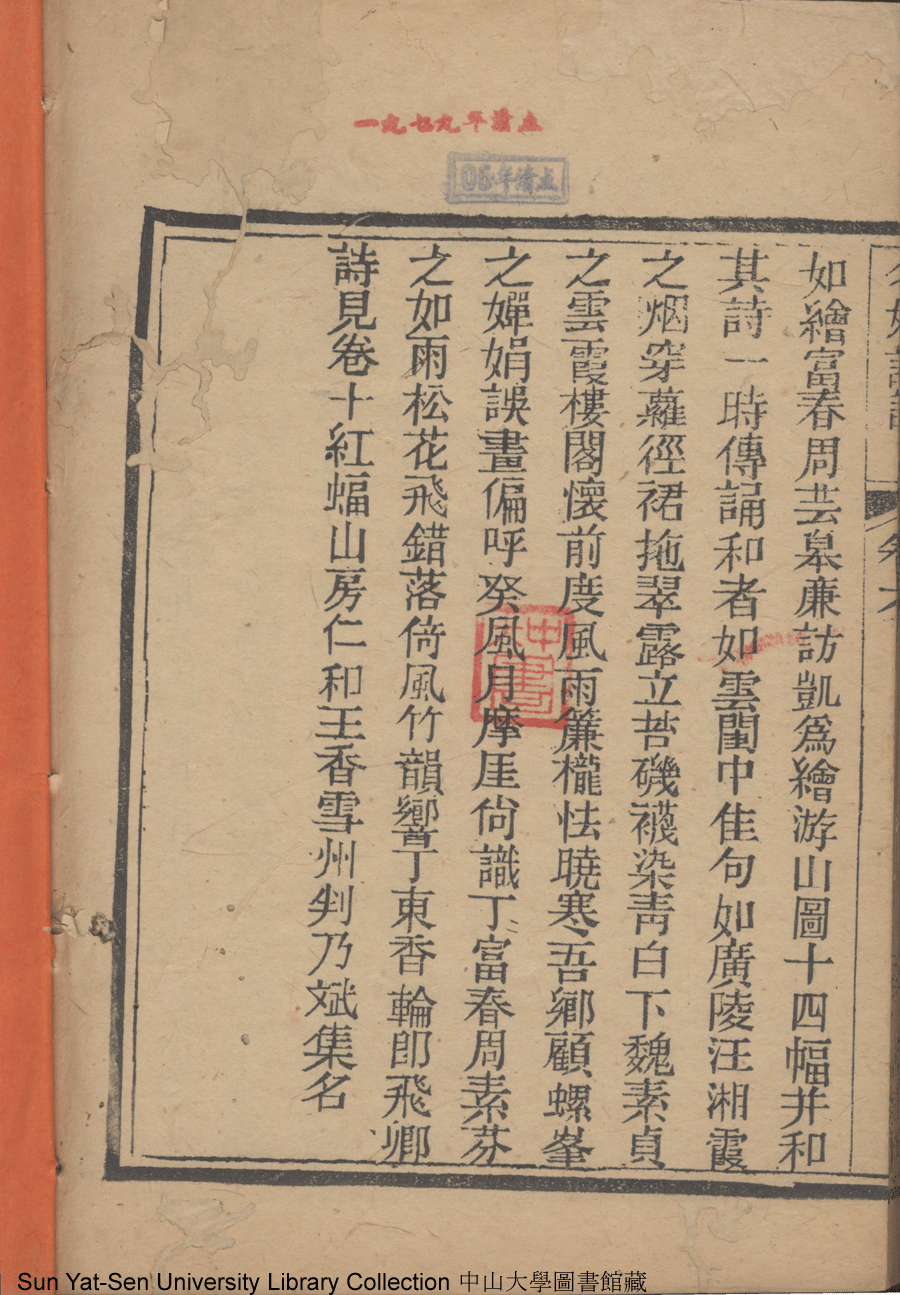 一九七九年清点
06年清点
如繪富春周芸臯廉訪凱爲繪游山圖十四幅并和
其詩一時傳誦和者如雲閨中佳句如廣陵汪湘霞
之烟穿蘿徑裙拖翠露立苔磯襪染靑白下魏素貞
之雲霞樓閣懷前度風雨簾櫳怯曉寒吾鄉顧螺峯
之嬋娟誤畫偏呼癸風月摩厓尙識丁富春周素芬
之如雨松花飛錯落倚風竹韻響丁東香輪卽飛卿
詩見卷十紅蝠山房仁和王香雪州判乃斌集名
Sun Yat-Sen University Library Collection 中山大學圖書館藏